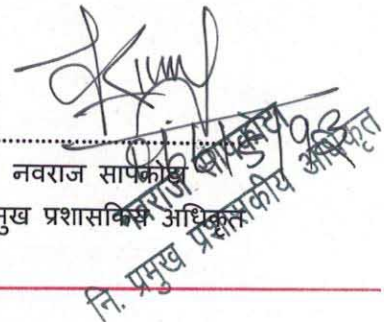 नवराज सापकोटा
मुख प्रशासकिय अधिकृत
नवराज सापकोटा
नि. प्रमुख प्रशासकीय अधिकृत